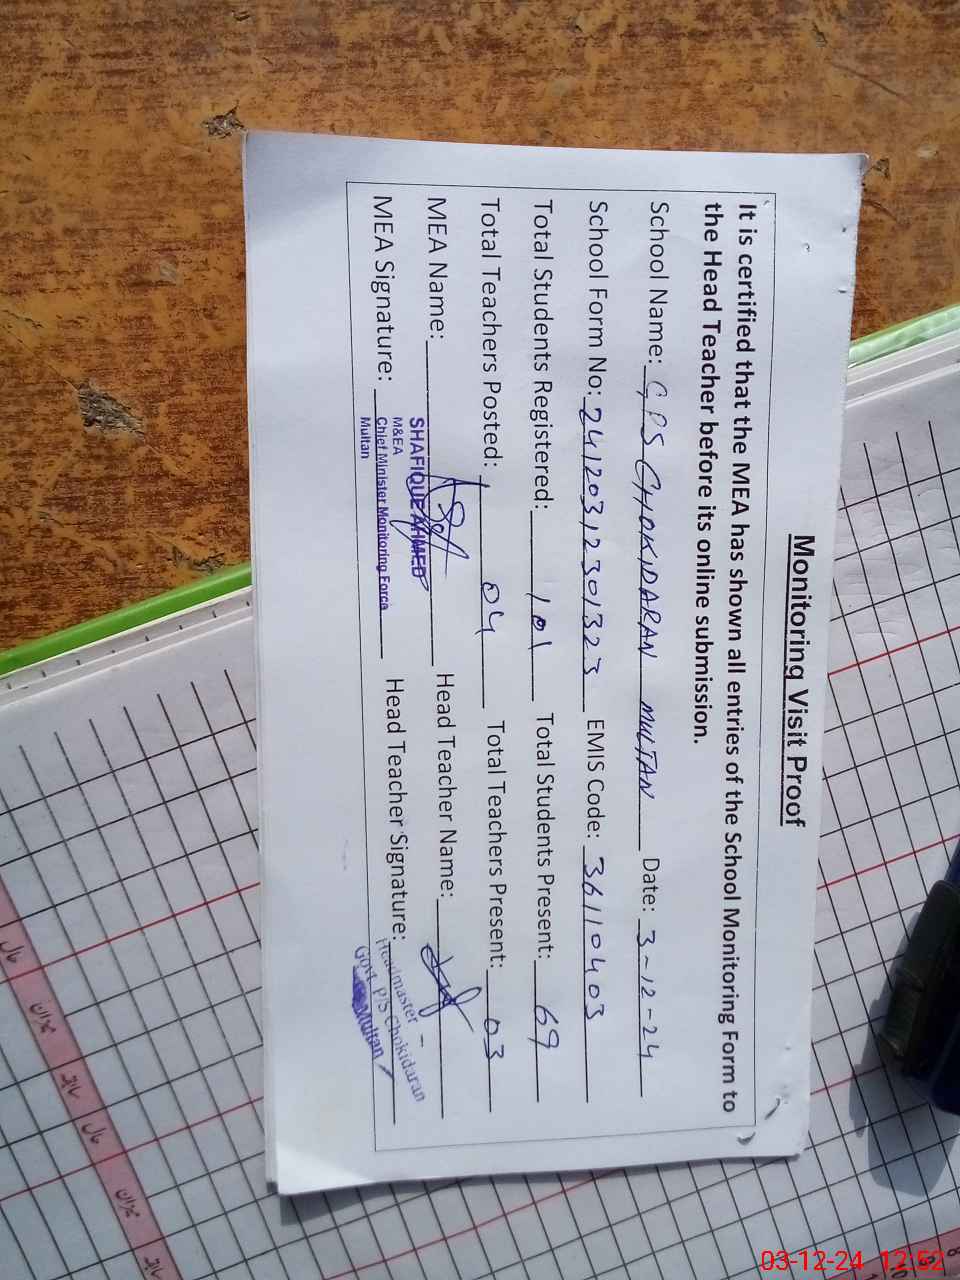 Monitoring Visit Proof
It is certified that the MEA has shown all entries of the School Monitoring Form to
the Head Teacher before its online submission.
School Name: GPS CHOKIDARAN MULTAN Date: 3-12-24
School Form No: 241203,2301323 EMIS Code: 36110403
Total Students Registered: 101 Total Students Present: 69
Total Teachers Posted: 04 Total Teachers Present: 03
MEA Name: Head Teacher Name:
SHAFIQUE AHMED
M&EA
MEA Signature: Chief Minister Monitoring Force Head Teacher Signature:
Multan
Headmaster
Govt P/S Chokidaran
Multan
میزان
میزان
03-12-24 12:52